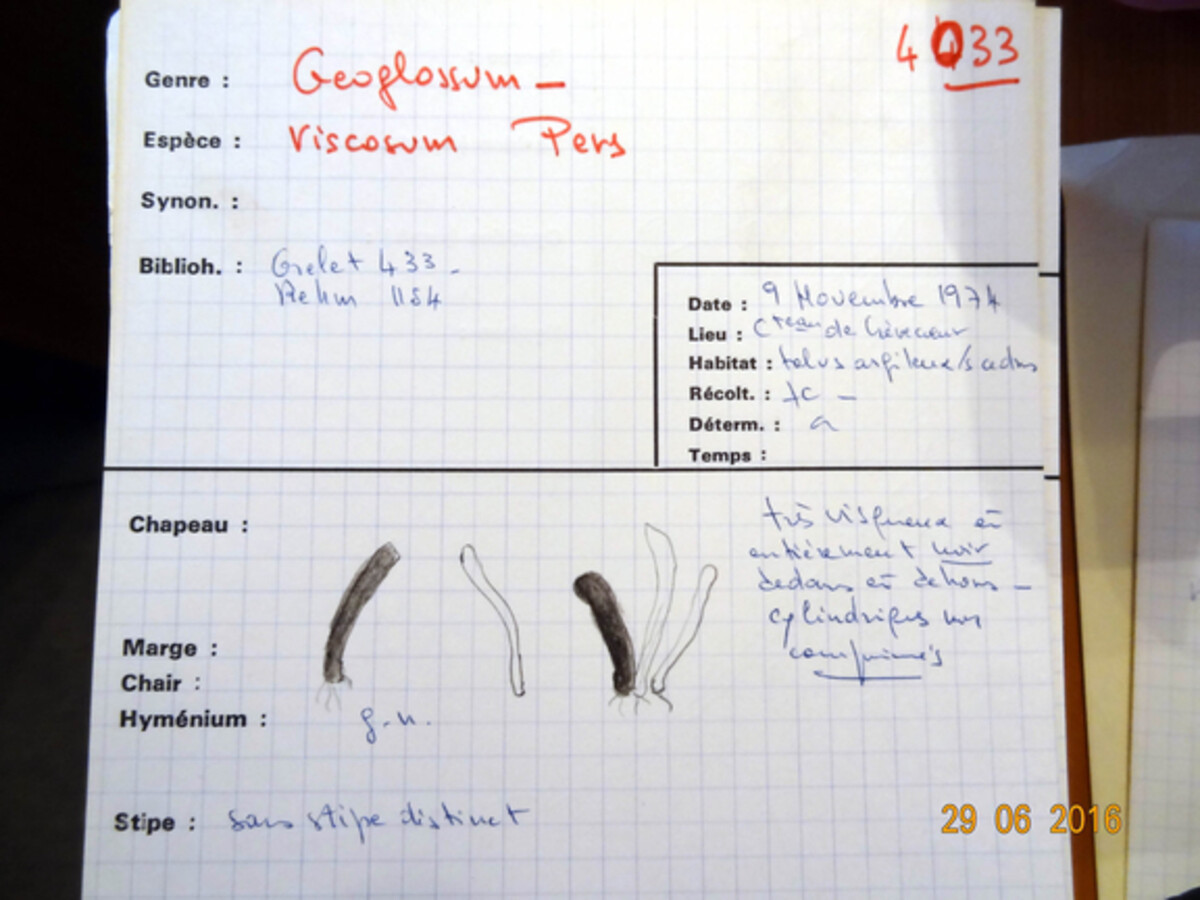 4033
Genre : Geoglossum –
Espèce : Viscosum Pers
Synon. :
Biblioh. : Grelet 433 –
Rehm 1154
Date : 9 Novembre 1974
Lieu : Cteau de Crèvecœur
Habitat : talus argileux /s cedres
Récolt. :
Déterm. :
Temps :
Chapeau :
très visqueux et
entièrement noir
dedans et dehors –
cylindriques non
comprimés
Marge :
Chair :
Hyménium : g. n.
Stipe : sans stipe distinct
29 06 2016